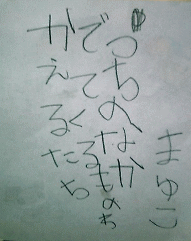 まゆこ
つちのなか
でてくるものわ
かえるたち